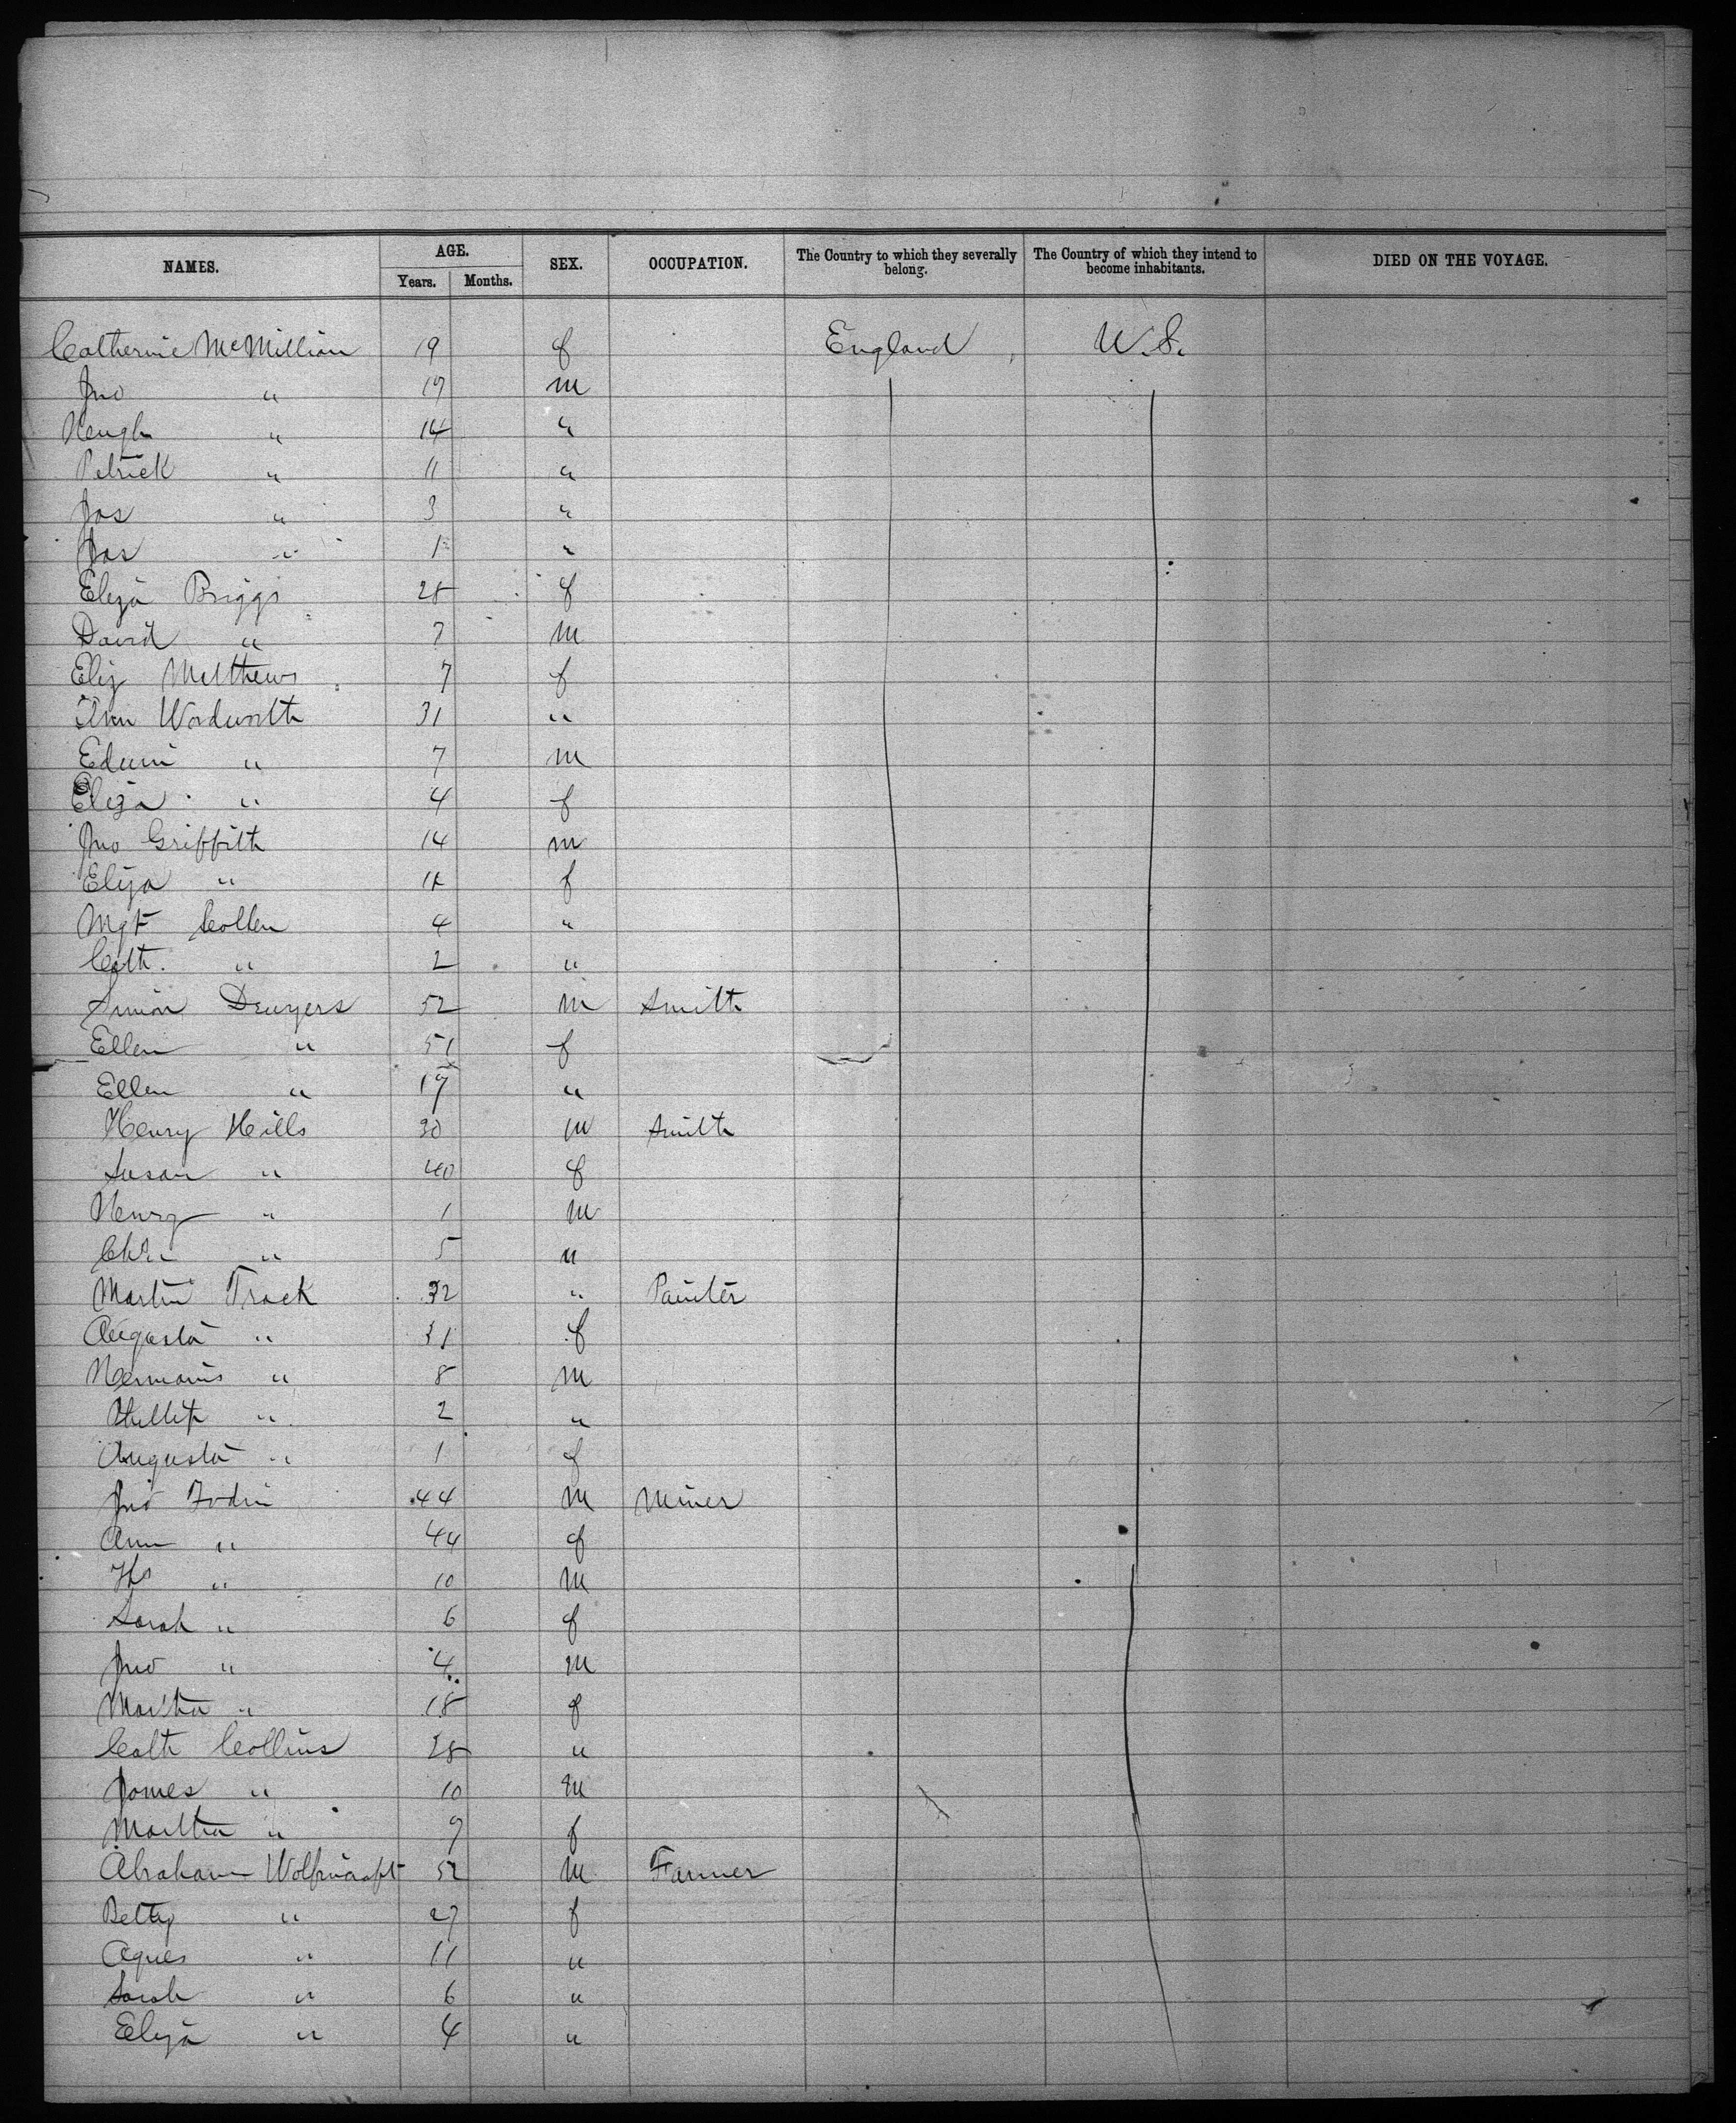 NAMES. AGE. Years. Months. SEX. OCCUPATION. The Country to which they severally belong. The Country of which they intend to become inhabitants. DIED ON THE VOYAGE.
Catherine McMillian 19 f England U.S.
Jno " 19 m
Heugh " 14 "
Patrick " 11 "
Jos " 3 "
Jas " 1 "
Eliza Briggs 28 f
David " 7 m
Eliz Matthews 7 f
Ann Wordworth 31 "
Edwin " 7 m
Eliza " 4 f
Jno Griffith 14 m
Eliza " f
Mgt Collen 4 "
Cath. " 2 "
Simon 52 m Smith
Ellen " 51 f
Ellen " 19 "
Henry Hills 30 m Smith
Susan " 40 f
Henry " 1 m
" 5 "
Martin Track 32 " Painter
Augusta " 31 f
" 8 m
Phillip " 2 "
Augusta " 1 f
Jno 44 m Miner
Ann " 44 f
" 10 m
Sarah " 6 f
Jno " 4 m
Martha " 18 f
Cath Collins 28 "
James " 10 m
Martha " 9 f
Abraham 52 m Farmer
Betty " 27 f
Agnes " 11 "
Sarah " 6 "
Eliza " 4 "